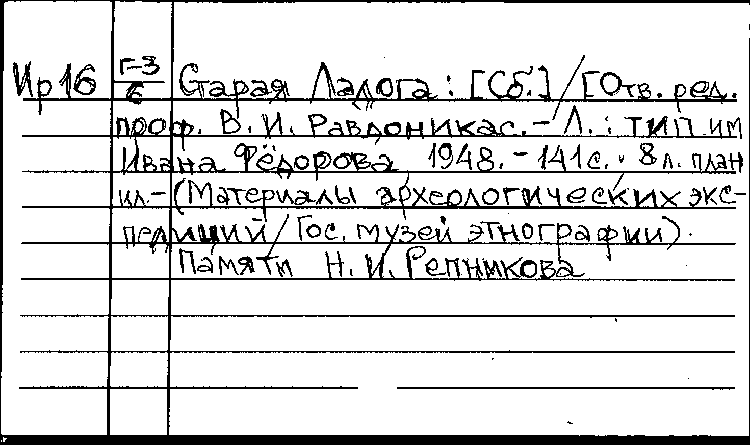 Ир 16 Г-3/6 Старая Ладога : [Сб.] / [Отв. ред.
проф. В. И. Равдоникас. - Л. : тип им
Ивана Фёдорова, 1948. - 141 с. · 8 л. план
ил. - (Материалы археологических экс-
педиций / Гос. музей этнографии).
Памяти Н. И. Репникова